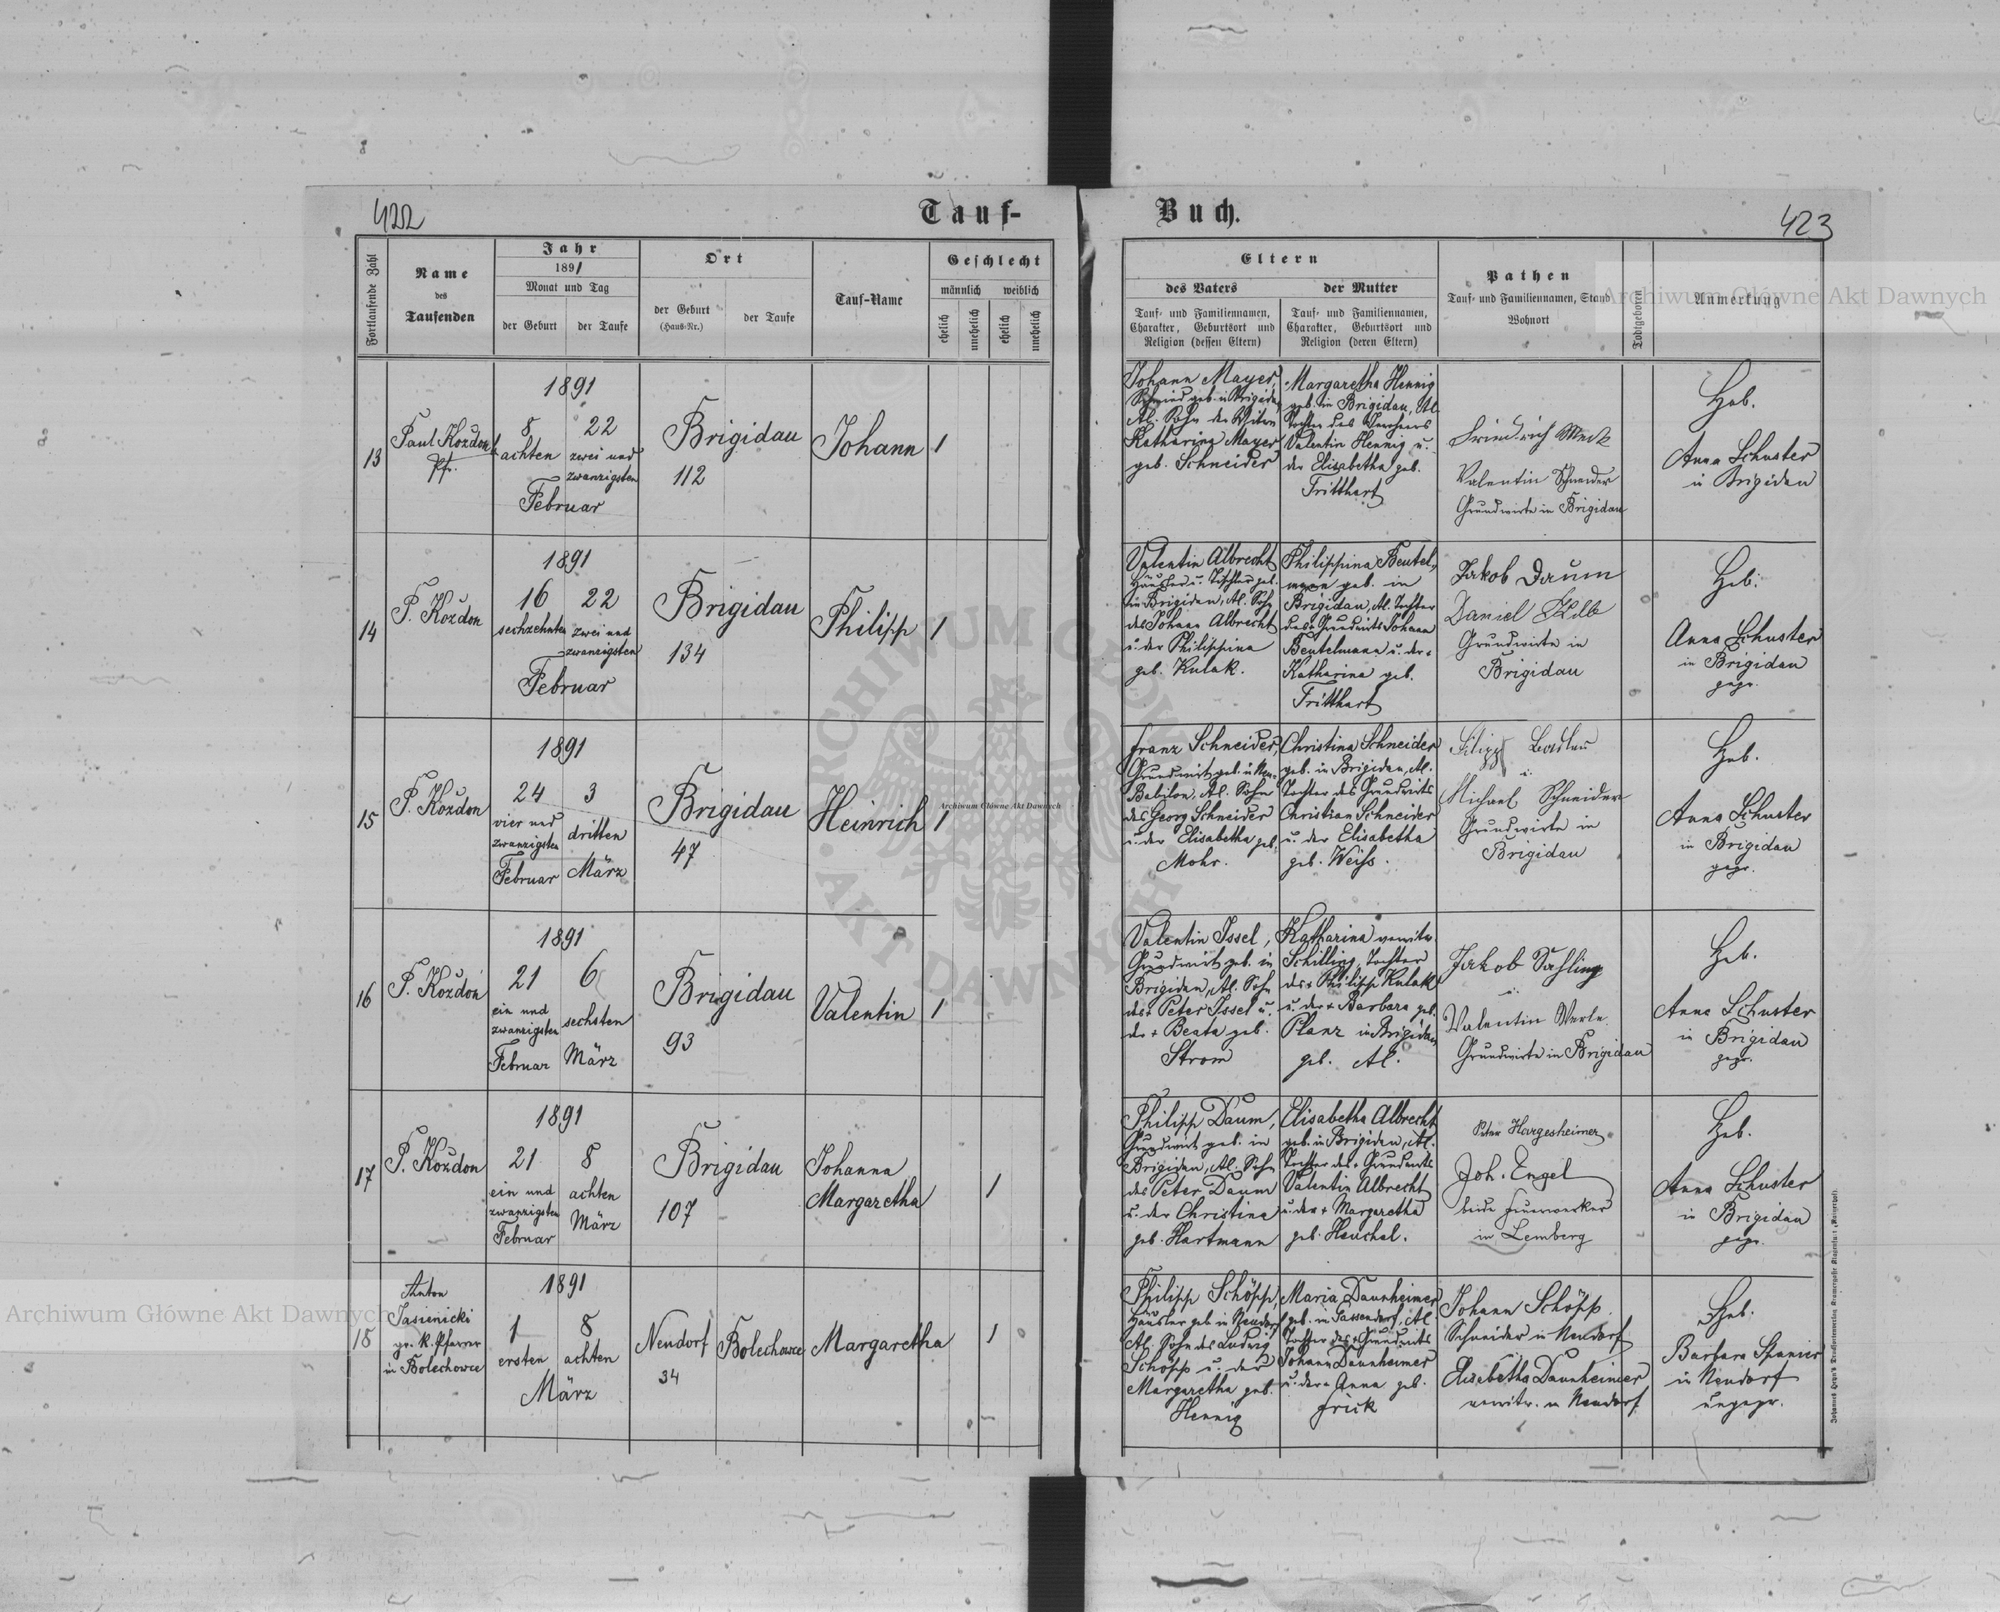 422
Tauf-
Buch.
423
Fortlaufende Zahl
Name
des
Taufenden
Jahr
1891
Monat und Tag
der Geburt
der Taufe
Ort
der Geburt
(Haus-Nr.)
der Taufe
Tauf-Name
Geschlecht
männlich
weiblich
ehelich
unehelich
ehelich
unehelich
Eltern
des Vaters
der Mutter
Tauf- und Familiennamen,
Charakter, Geburtsort und
Religion (dessen Eltern)
Tauf- und Familiennamen,
Charakter, Geburtsort und
Religion (deren Eltern)
Pathen
Tauf- und Familiennamen, Stand
Wohnort
Todtgeboren
Anmerkung
13
Paul Kozdon
Pfr.
1891
8
achten
22
zwei und
zwanzigsten
Februar
Brigidau
112
Johann
1
Johann Mayer,
Schmied geb. in Brigidau,
Al. Sohn der Witwe
Katharina Mayer
geb. Schneider
Margaretha Hennig
geb. in Brigidau, Al.
Tochter des
Valentin Hennig u.
der Elisabetha geb.
Fritthart
Friedrich Meck
Valentin Schneider
Grundwirte in Brigidau
Heb.
Anna Schuster
in Brigidau
14
P. Kozdon
1891
16
sechzehnten
22
zwei und
zwanzigsten
Februar
Brigidau
134
Philipp
1
Valentin Albrecht
Häusler u. Tischler geb.
in Brigidau, Al. Sohn
des Johann Albrecht
u. der Philippina
geb. Kulak.
Philippina Beutel-
mann geb. in
Brigidau, Al. Tochter
des + Grundwirts Johann
Beutelmann u. der +
Katharina geb.
Fritthart
Jakob Daum
Daniel Kolb
Grundwirte in
Brigidau
Heb.
Anna Schuster
in Brigidau
gepr.
15
P. Kozdon
1891
24
vier und
zwanzigsten
Februar
3
dritten
März
Brigidau
47
Heinrich
1
Franz Schneider,
Grundwirt geb. in Neu-
Babilon, Al. Sohn
des Georg Schneider
u. der Elisabetha geb.
Mohr.
Christina Schneider
geb. in Brigidau, Al.
Tochter des Grundwirts
Christian Schneider
u. der Elisabetha
geb. Weiss.
Filipp
u.
Michael Schneider
Grundwirte in
Brigidau
Heb.
Anna Schuster
in Brigidau
gepr.
16
P. Kozdon
1891
21
ein und
zwanzigsten
Februar
6
sechsten
März
Brigidau
93
Valentin
1
Valentin Issel,
Grundwirt geb. in
Brigidau, Al. Sohn
des + Peter Issel u.
der + Beata geb.
Strom
Katharina verwitw.
Schilling, Tochter
des + Philipp Kulak
u. der + Barbara geb.
Planz in Brigidau
geb. Al.
Jakob Sahling
u.
Valentin Werle
Grundwirte in Brigidau
Heb.
Anna Schuster
in Brigidau
gepr.
17
P. Kozdon
1891
21
ein und
zwanzigsten
Februar
8
achten
März
Brigidau
107
Johanna
Margaretha
1
Philipp Daum,
Grundwirt geb. in
Brigidau, Al. Sohn
des Peter Daum
u. der Christina
geb. Hartmann
Elisabetha Albrecht
geb. in Brigidau, Al.
Tochter des + Grundwirts
Valentin Albrecht
u. der + Margaretha
geb. Heuchel.
Peter Hargesheimer
Joh. Engel
beide Feuerwerker
in Lemberg
Heb.
Anna Schuster
in Brigidau
gepr.
18
Anton
Jasienicki
gr. k. Pfarrer
in Bolechowce
1891
1
ersten
8
achten
März
Neudorf
34
Bolechowce
Margaretha
1
Philipp Schöpp,
Häusler geb. in Neudorf
Al. Sohn des Ludwig
Schöpp u. der
Margaretha geb.
Hennig
Maria Daunheimer
geb. in Sassendorf, Al.
Tochter des + Grundwirts
Johann Daunheimer
u. der + Anna geb.
Frick
Johann Schöpp.
Schneider in Neudorf
Elisabetha Daunheimer
verwitw. in Neudorf
Heb.
Barbara Spanier
in Neudorf
ungepr.
Archiwum Główne Akt Dawnych
Archiwum Główne Akt Dawnych
Archiwum Główne Akt Dawnych
ARCHIWUM GŁÓWNE
AKT DAWNYCH